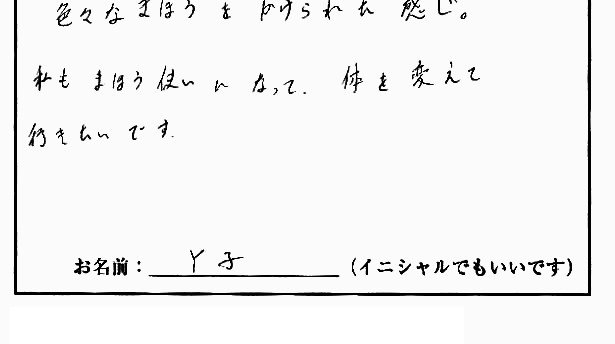 色々なまほうをかけられた感じ。
私もまほう使いになって、体を変えて
行きたいです。
お名前：Y子（イニシャルでもいいです）